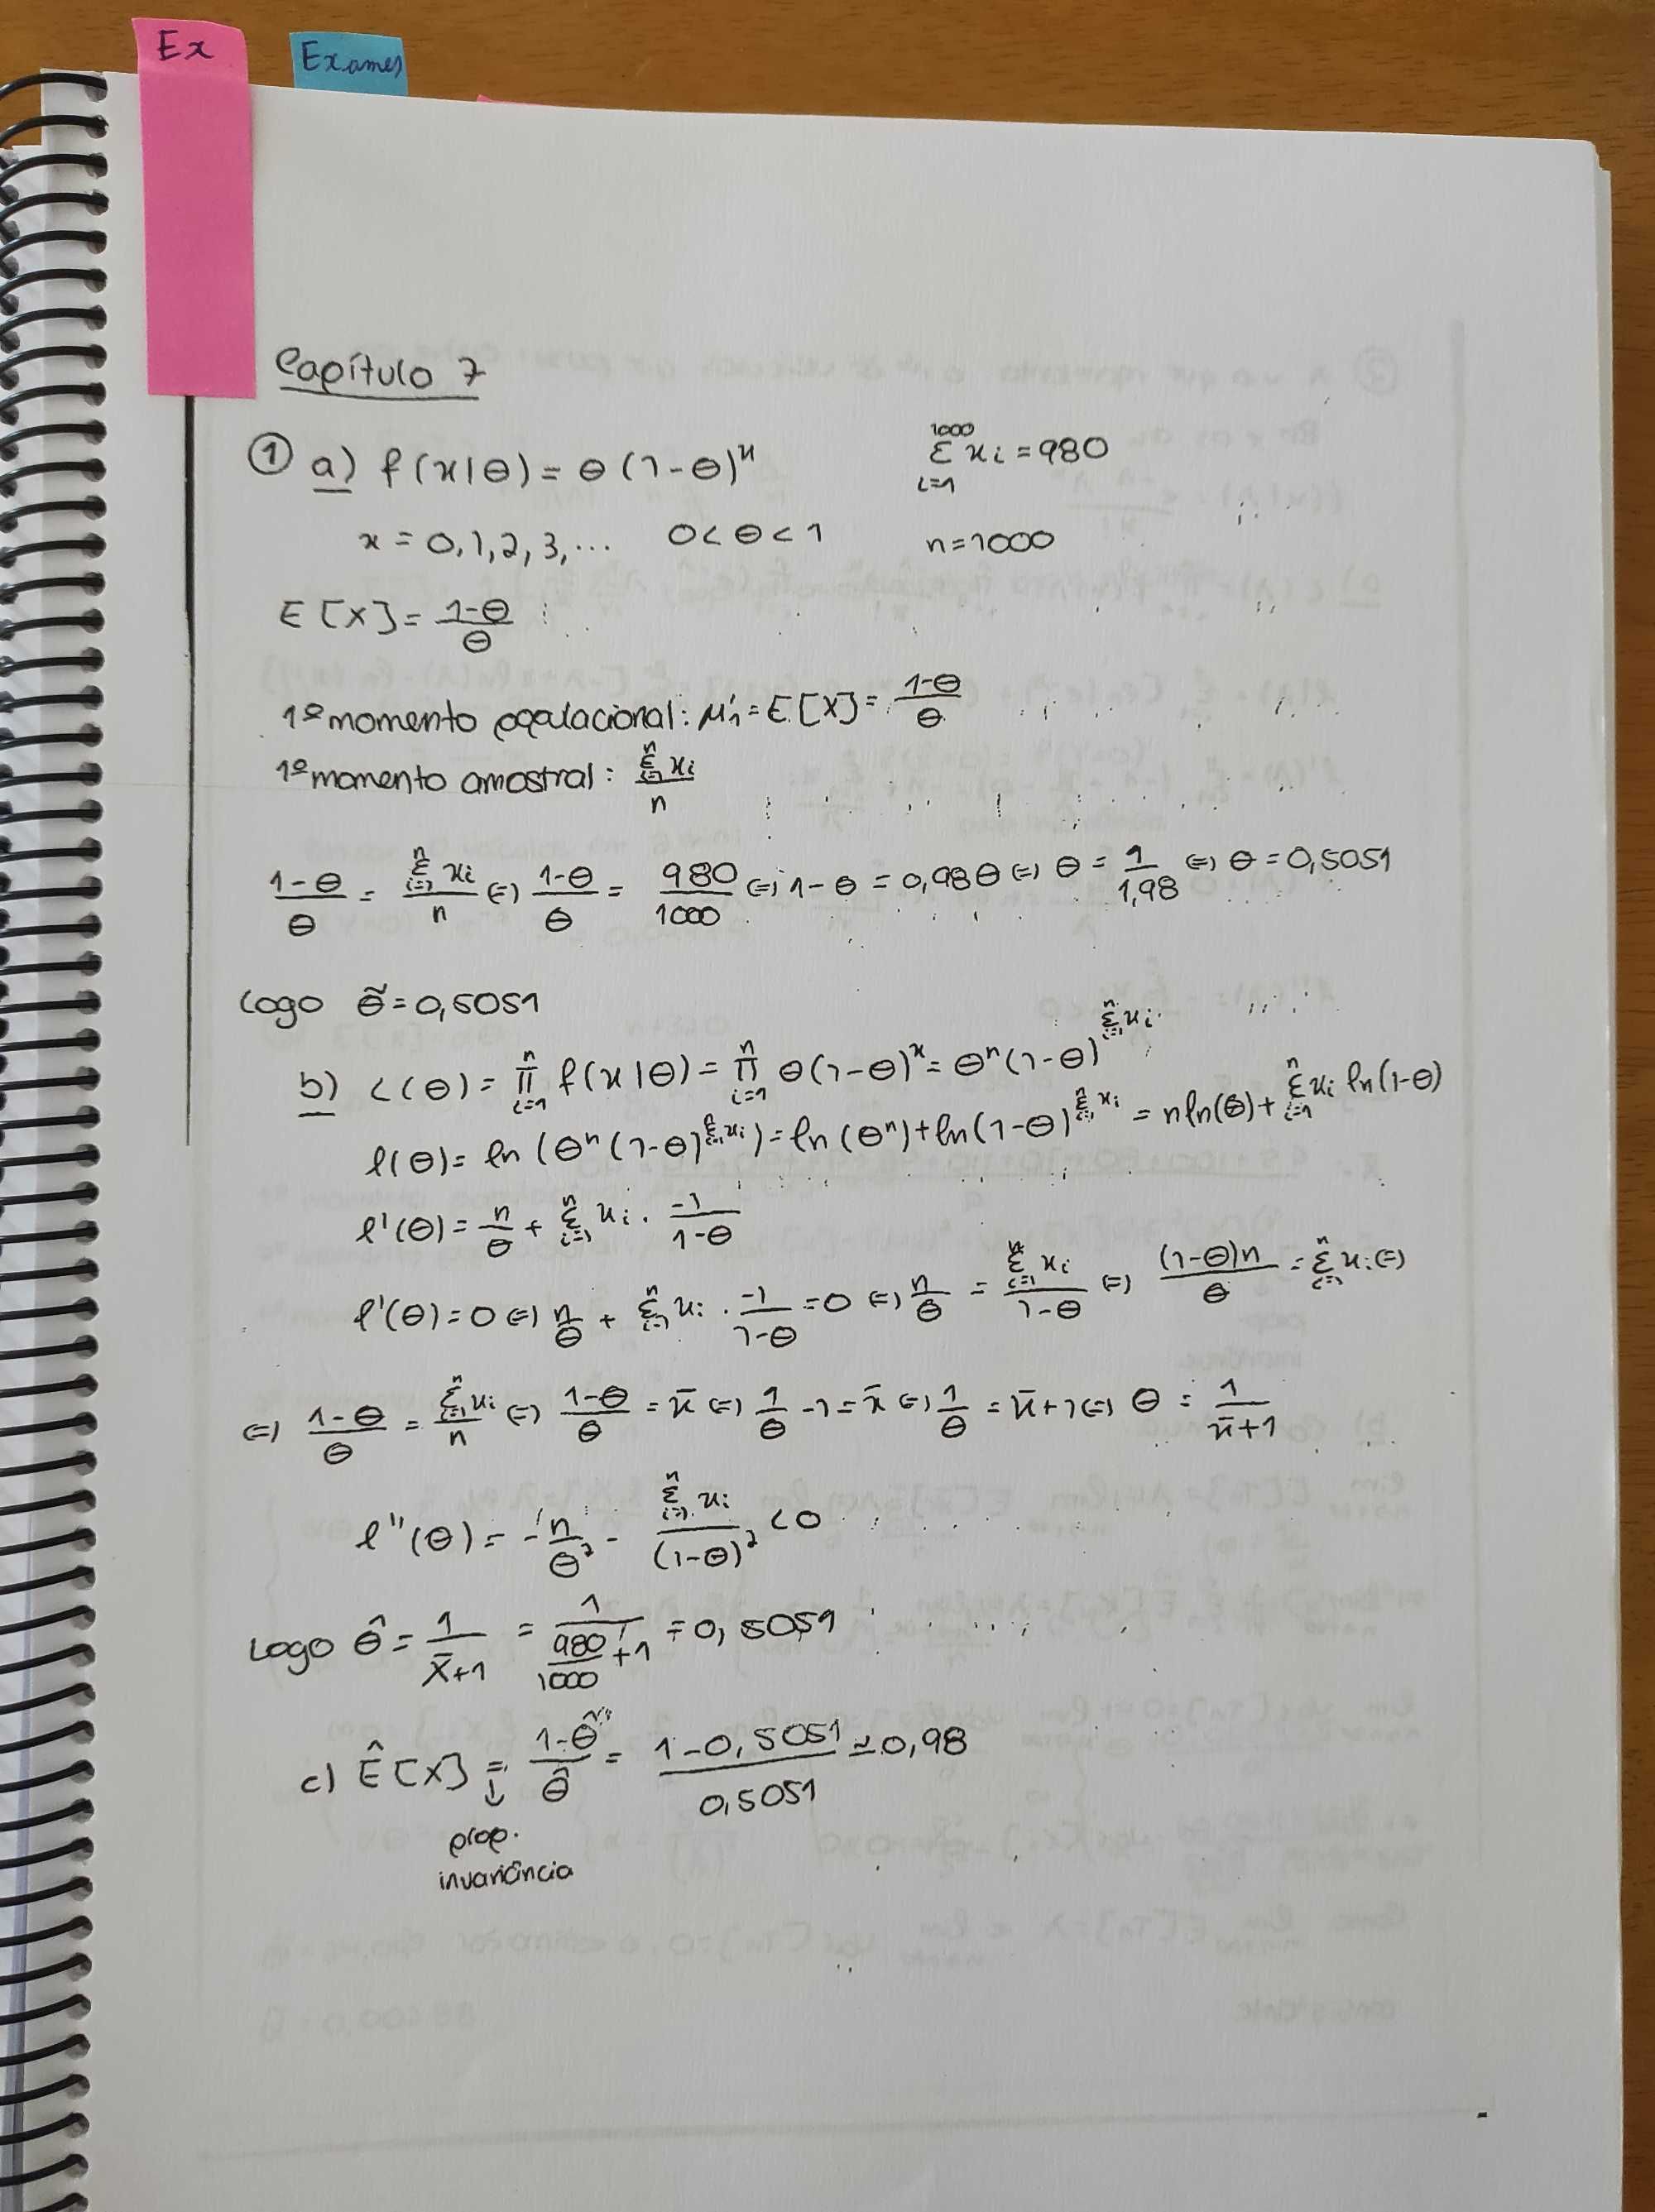 Ex
Exames
Capítulo 7
① a) f(x|θ) = θ(1-θ)^x
∑_{i=1}^{1000} xi = 980
x = 0,1,2,3,... 0<θ<1 n=1000
E[X] = (1-θ)/θ
1º momento populacional: μ'1 = E[X] = (1-θ)/θ
1º momento amostral: (∑_{i=1}^{n} xi)/n
(1-θ)/θ = (∑_{i=1}^{n} xi)/n (=) (1-θ)/θ = 980/1000 (=) 1-θ = 0,98θ (=) θ = 1/1,98 (=) θ = 0,5051
Logo θ̃ = 0,5051
b) L(θ) = ∏_{i=1}^{n} f(x|θ) = ∏_{i=1}^{n} θ(1-θ)^x = θ^n (1-θ)^{∑_{i=1}^{n} xi}
ℓ(θ) = ln(θ^n (1-θ)^{∑_{i=1}^{n} xi}) = ln(θ^n) + ln(1-θ)^{∑_{i=1}^{n} xi} = n ln(θ) + ∑_{i=1}^{n} xi ln(1-θ)
ℓ'(θ) = n/θ + ∑_{i=1}^{n} xi . -1/(1-θ)
ℓ'(θ) = 0 (=) n/θ + ∑_{i=1}^{n} xi . -1/(1-θ) = 0 (=) n/θ = (∑_{i=1}^{n} xi)/(1-θ) (=) (1-θ)n/θ = ∑_{i=1}^{n} xi (=)
(=) (1-θ)/θ = (∑_{i=1}^{n} xi)/n (=) (1-θ)/θ = x̄ (=) 1/θ - 1 = x̄ (=) 1/θ = x̄+1 (=) θ = 1/(x̄+1)
ℓ''(θ) = -n/θ² - (∑_{i=1}^{n} xi)/(1-θ)² < 0
Logo θ̂ = 1/(X̄+1) = 1/(980/1000 + 1) = 0,5051
c) Ê[X] = (1-θ̂)/θ̂ = (1-0,5051)/0,5051 ≃ 0,98
↓
prop.
invariância